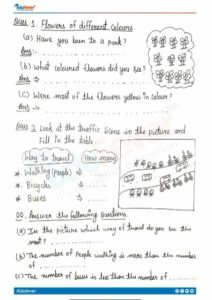 Edufever
Ques 1. Flowers of different Colours
(a) Have you been to a park?
Ans:-
(b) What coloured flowers did you see?
Ans :-
(c) Were most of the flowers yellow in colour?
Ans :-
Ques 2. Look at the traffic scene in the picture and
Fill in the table
Way to travel How many
* Walking (People) ⇒
* Bicycles ⇒
* Buses ⇒
QQ. Answer the following Questions.
(A) In the picture which way of travel do you see the
most?
(B) The number of People walking is more than the number
of
(C) The number of buses is less than the number of
Edufever